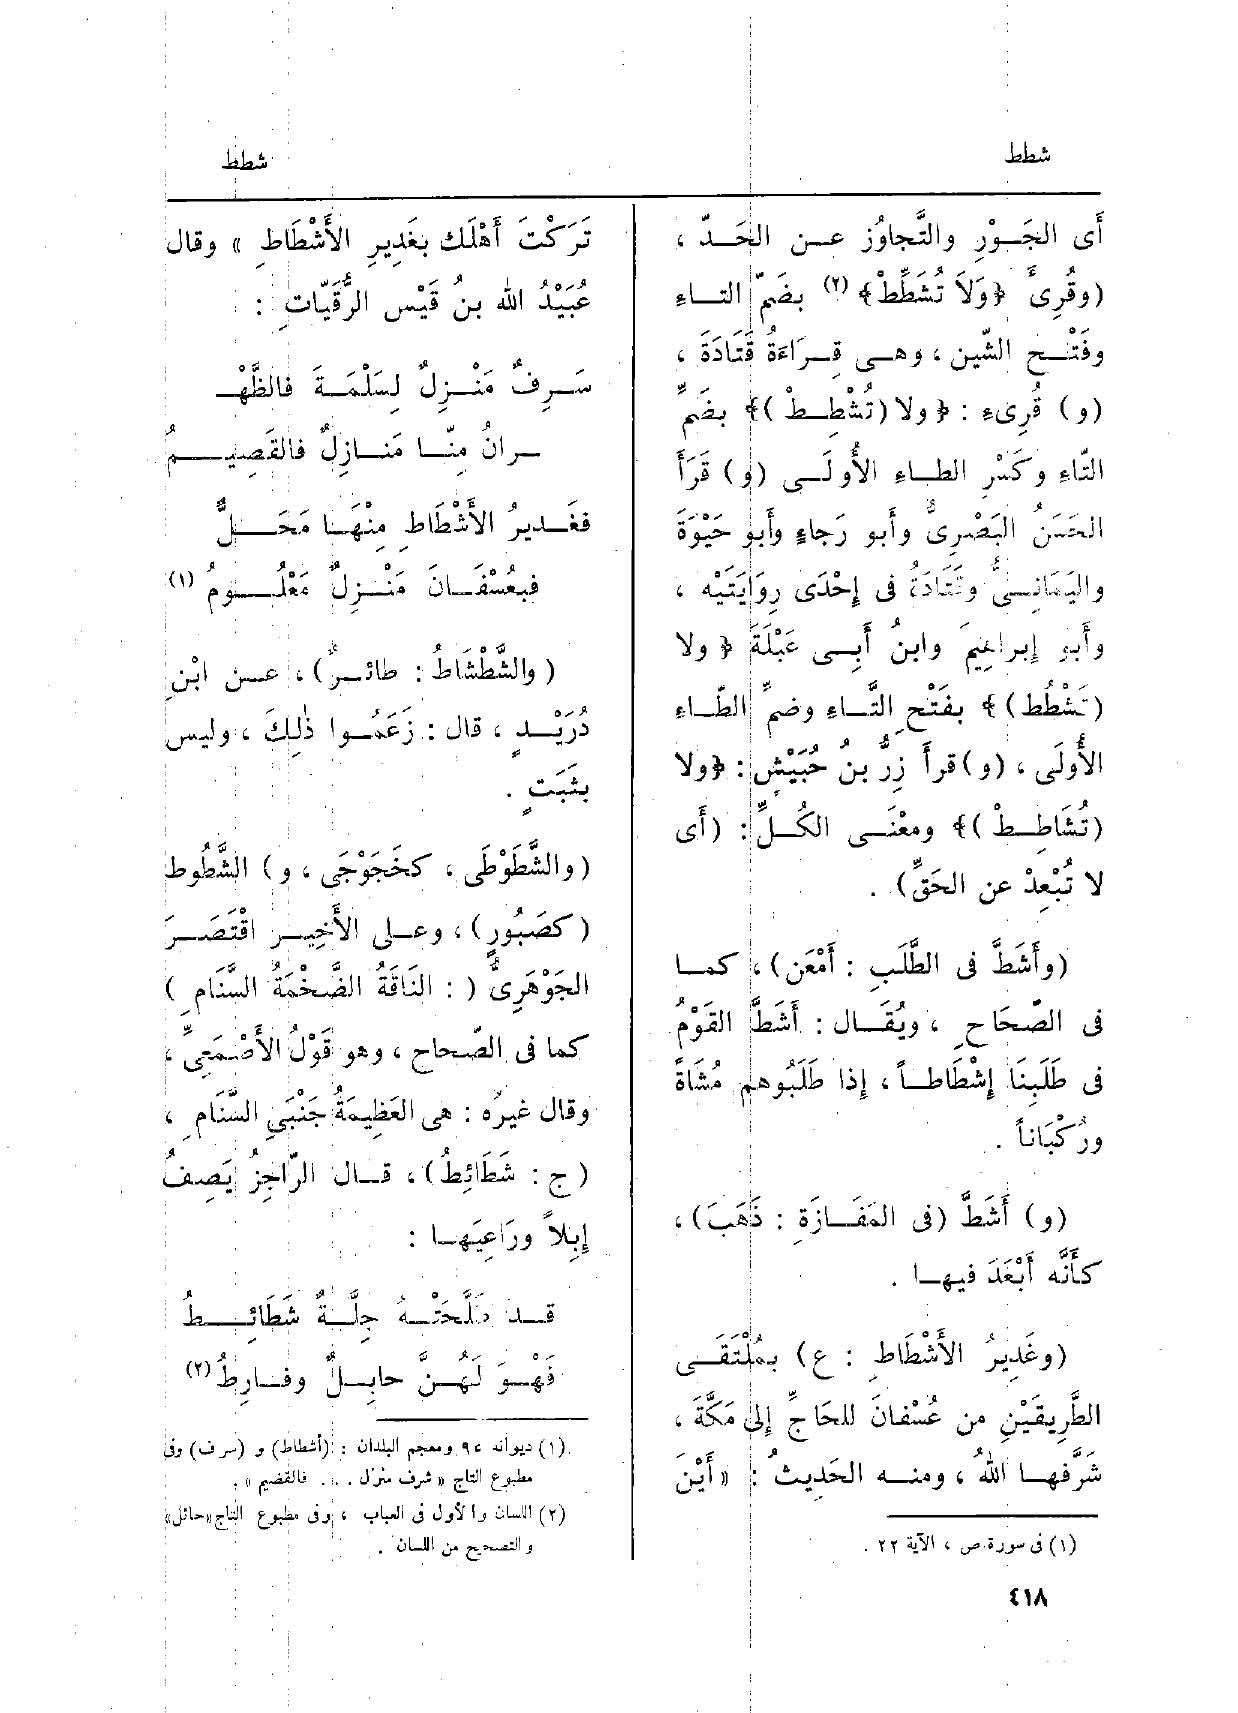 شطط
شطط
أى الجَــوْرِ والتَّجاوُزِ عــن الحَــدّ ،
(وقُرِئَ ﴿وَلاَ تُشَطِّطْ﴾ (٢) بضَمّ التــاءِ
وفَتْــح الشّين ، وهــى قِــرَاءَةُ قَتَادَةَ ،
(و) قُرِئَ : ﴿ ولا (تُشْطِــطْ )﴾ بضَمِّ
التّاءِ وكَسْرِ الطــاءِ الأُولَــى (و) قَرَأَ
الحَسَنُ البَصْرِىُّ وأَبو رَجاءٍ وأَبو حَيْوَةَ
واليَمَانِــىُّ وقَتَادَةُ فى إِحْدَى رِوَايَتَيْه ،
وأَبو إِبراهِيمَ وابنُ أَبِــى عَبْلَةَ ﴿ ولا
(تَشْطُط )﴾ بفَتْحِ التَّــاءِ وضمِّ الطّــاءِ
الأُولَى ، (و) قرأَ زِرُّ بنُ حُبَيْشٍ : ﴿ولا
(تُشَاطِــطْ )﴾ ومعْنَــى الكُــلِّ : (أَى
لا تُبْعِدْ عن الحَقِّ) .
(وأَشَطَّ فى الطَّلَبِ : أَمْعَن) ، كمــا
فى الصّحَاحِ ، ويُقَــال : أَشَطَّ القَوْمُ
فى طَلَبِنَا إِشْطَاطــاً ، إِذا طَلَبُوهم مُشَاةً
ورُكْبَاناً .
(و) أَشَطَّ (فى المَفَــازَةِ : ذَهَبَ) ،
كأَنَّه أَبْعَدَ فيهــا .
(وغَدِيرُ الأَشْطَاطِ : ع) بمُلْتَقَــى
الطَّرِيقَيْنِ من عُسْفانَ للحَاجِّ إِلى مَكَّةَ ،
شَرَّفهــا اللهُ ، ومنــه الحَدِيثُ : « أَيْنَ
(١) فى سورة ص ، الآية ٢٢ .
٤١٨
تَرَكْتَ أَهْلَك بغَدِيرِ الأَشْطَاطِ » وقال
عُبَيْدُ الله بنُ قَيْس الرُّقَيّات :
سَــرِفٌ مَنْــزِلٌ لِسَلْمَــةَ فالظَّهْــ
ــرانُ مِنّــا مَنَــازِلٌ فالقَصِيــمُ
فغَــدِيرُ الأَشْطَاطِ مِنْهَــا مَحَــلٌّ
فبعُسْفَــانَ مَنْــزِلٌ مَعْلُــومُ (١)
( والشَّطْشَاطُ : طائــرٌ) ، عــن ابْنِ
دُرَيْــدٍ ، قال : زَعَمُــوا ذٰلِكَ ، وليس
بثَبَتٍ .
(والشَّطَوْطَى ، كخَجَوْجَى ، و) الشَّطُوط
(كصَبُورٍ) ، وعــلى الأَخِيــرِ اقْتَصَــرَ
الجَوْهَرِىُّ ( : النَاقَةُ الضَّخْمَةُ السَّنَامِ )
كما فى الصّحاح ، وهو قَوْلُ الأَصْمَعِىِّ ،
وقال غيرُه : هى العَظِيمَةُ جَنْبَىِ السَّنَامِ ،
( ج : شَطَائِطُ) ، قــال الرّاجِزُ يَصِفُ
إِبِلاً ورَاعِيَهــا :
قــد طَلَّحَتْــهُ جِلَّــةٌ شَطَائِــطُ
فَهْــوَ لَهُــنَّ حابِــلٌ وفــارِطُ (٢)
(١) ديوانه ٩٤ ومعجم البلدان : (أشطاط) و (سرف) وفى
مطبوع التاج « شرف منزل . . . فالقضيم » .
(٢) اللسان والأول فى العباب ، وفى مطبوع التاج «حائل»
والتصحيح من اللسان .